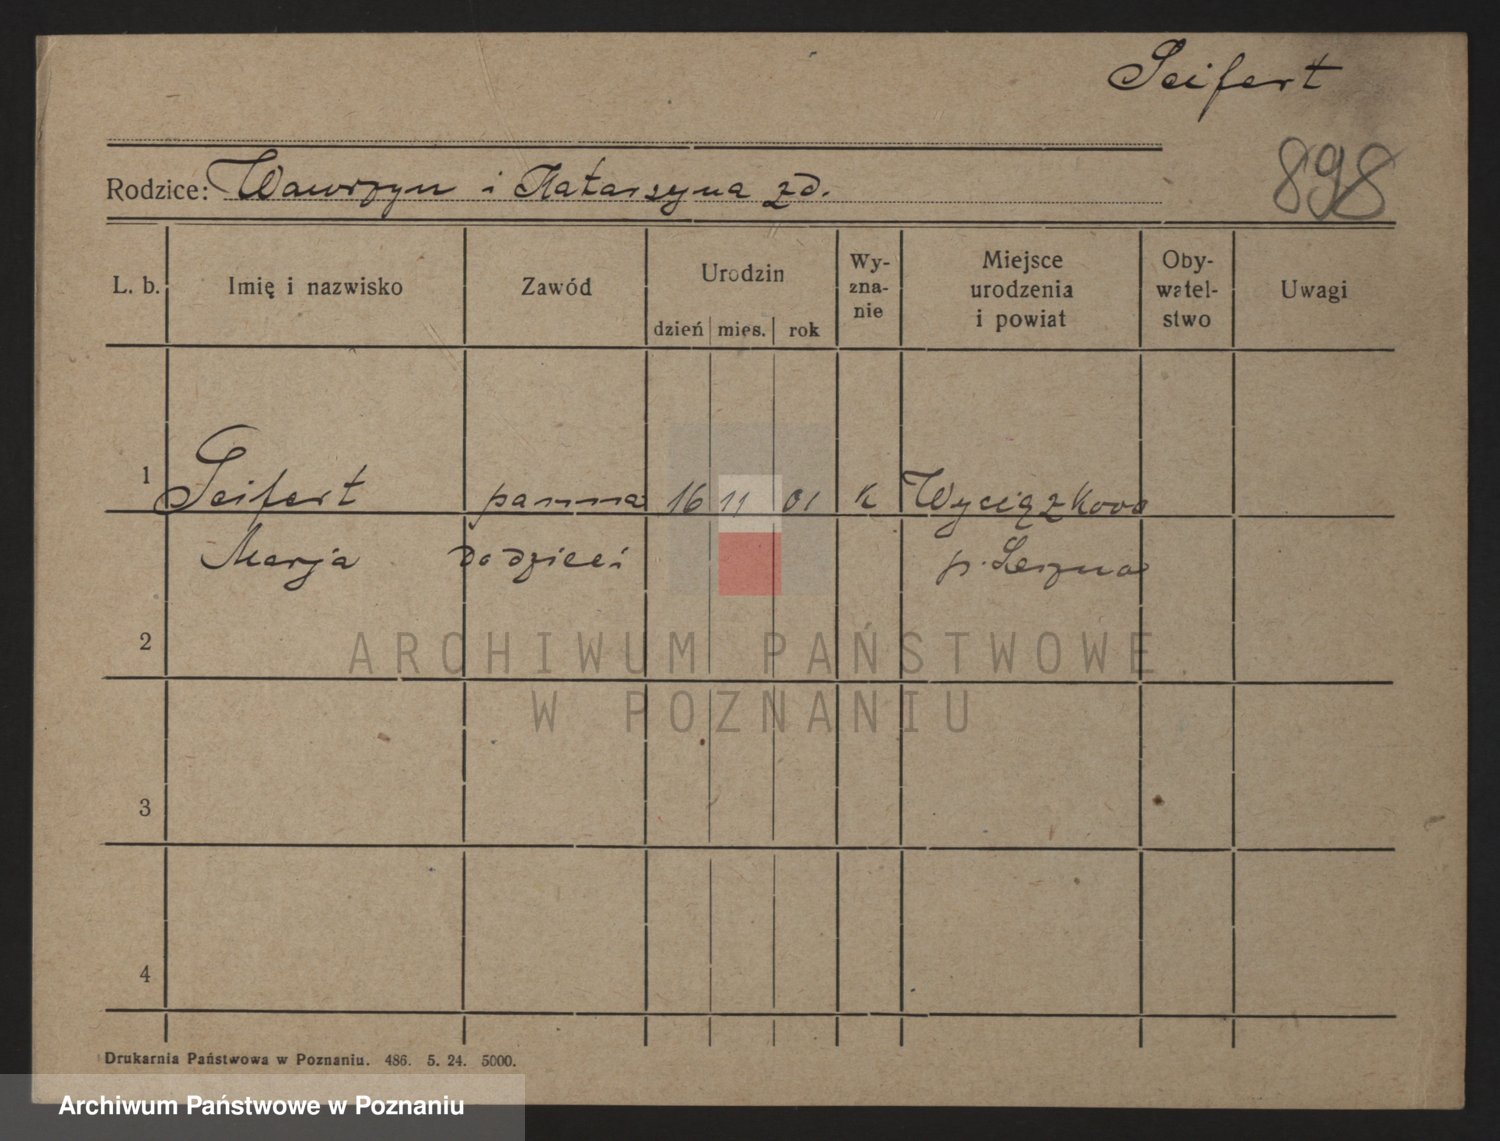 Seifert
898
Rodzice: Wawrzyn i Katarzyna zd.
L. b. Imię i nazwisko Zawód Urodzin Wy-zna-nie Miejsce urodzenia i powiat Oby-watel-stwo Uwagi
dzień mies. rok
1 Seifert panna 16 11 01 k Wyciązkowo
Marja do dzieci p. Leszno
2
3
4
ARCHIWUM PAŃSTWOWE
W POZNANIU
Drukarnia Państwowa w Poznaniu. 486. 5. 24. 5000.
Archiwum Państwowe w Poznaniu